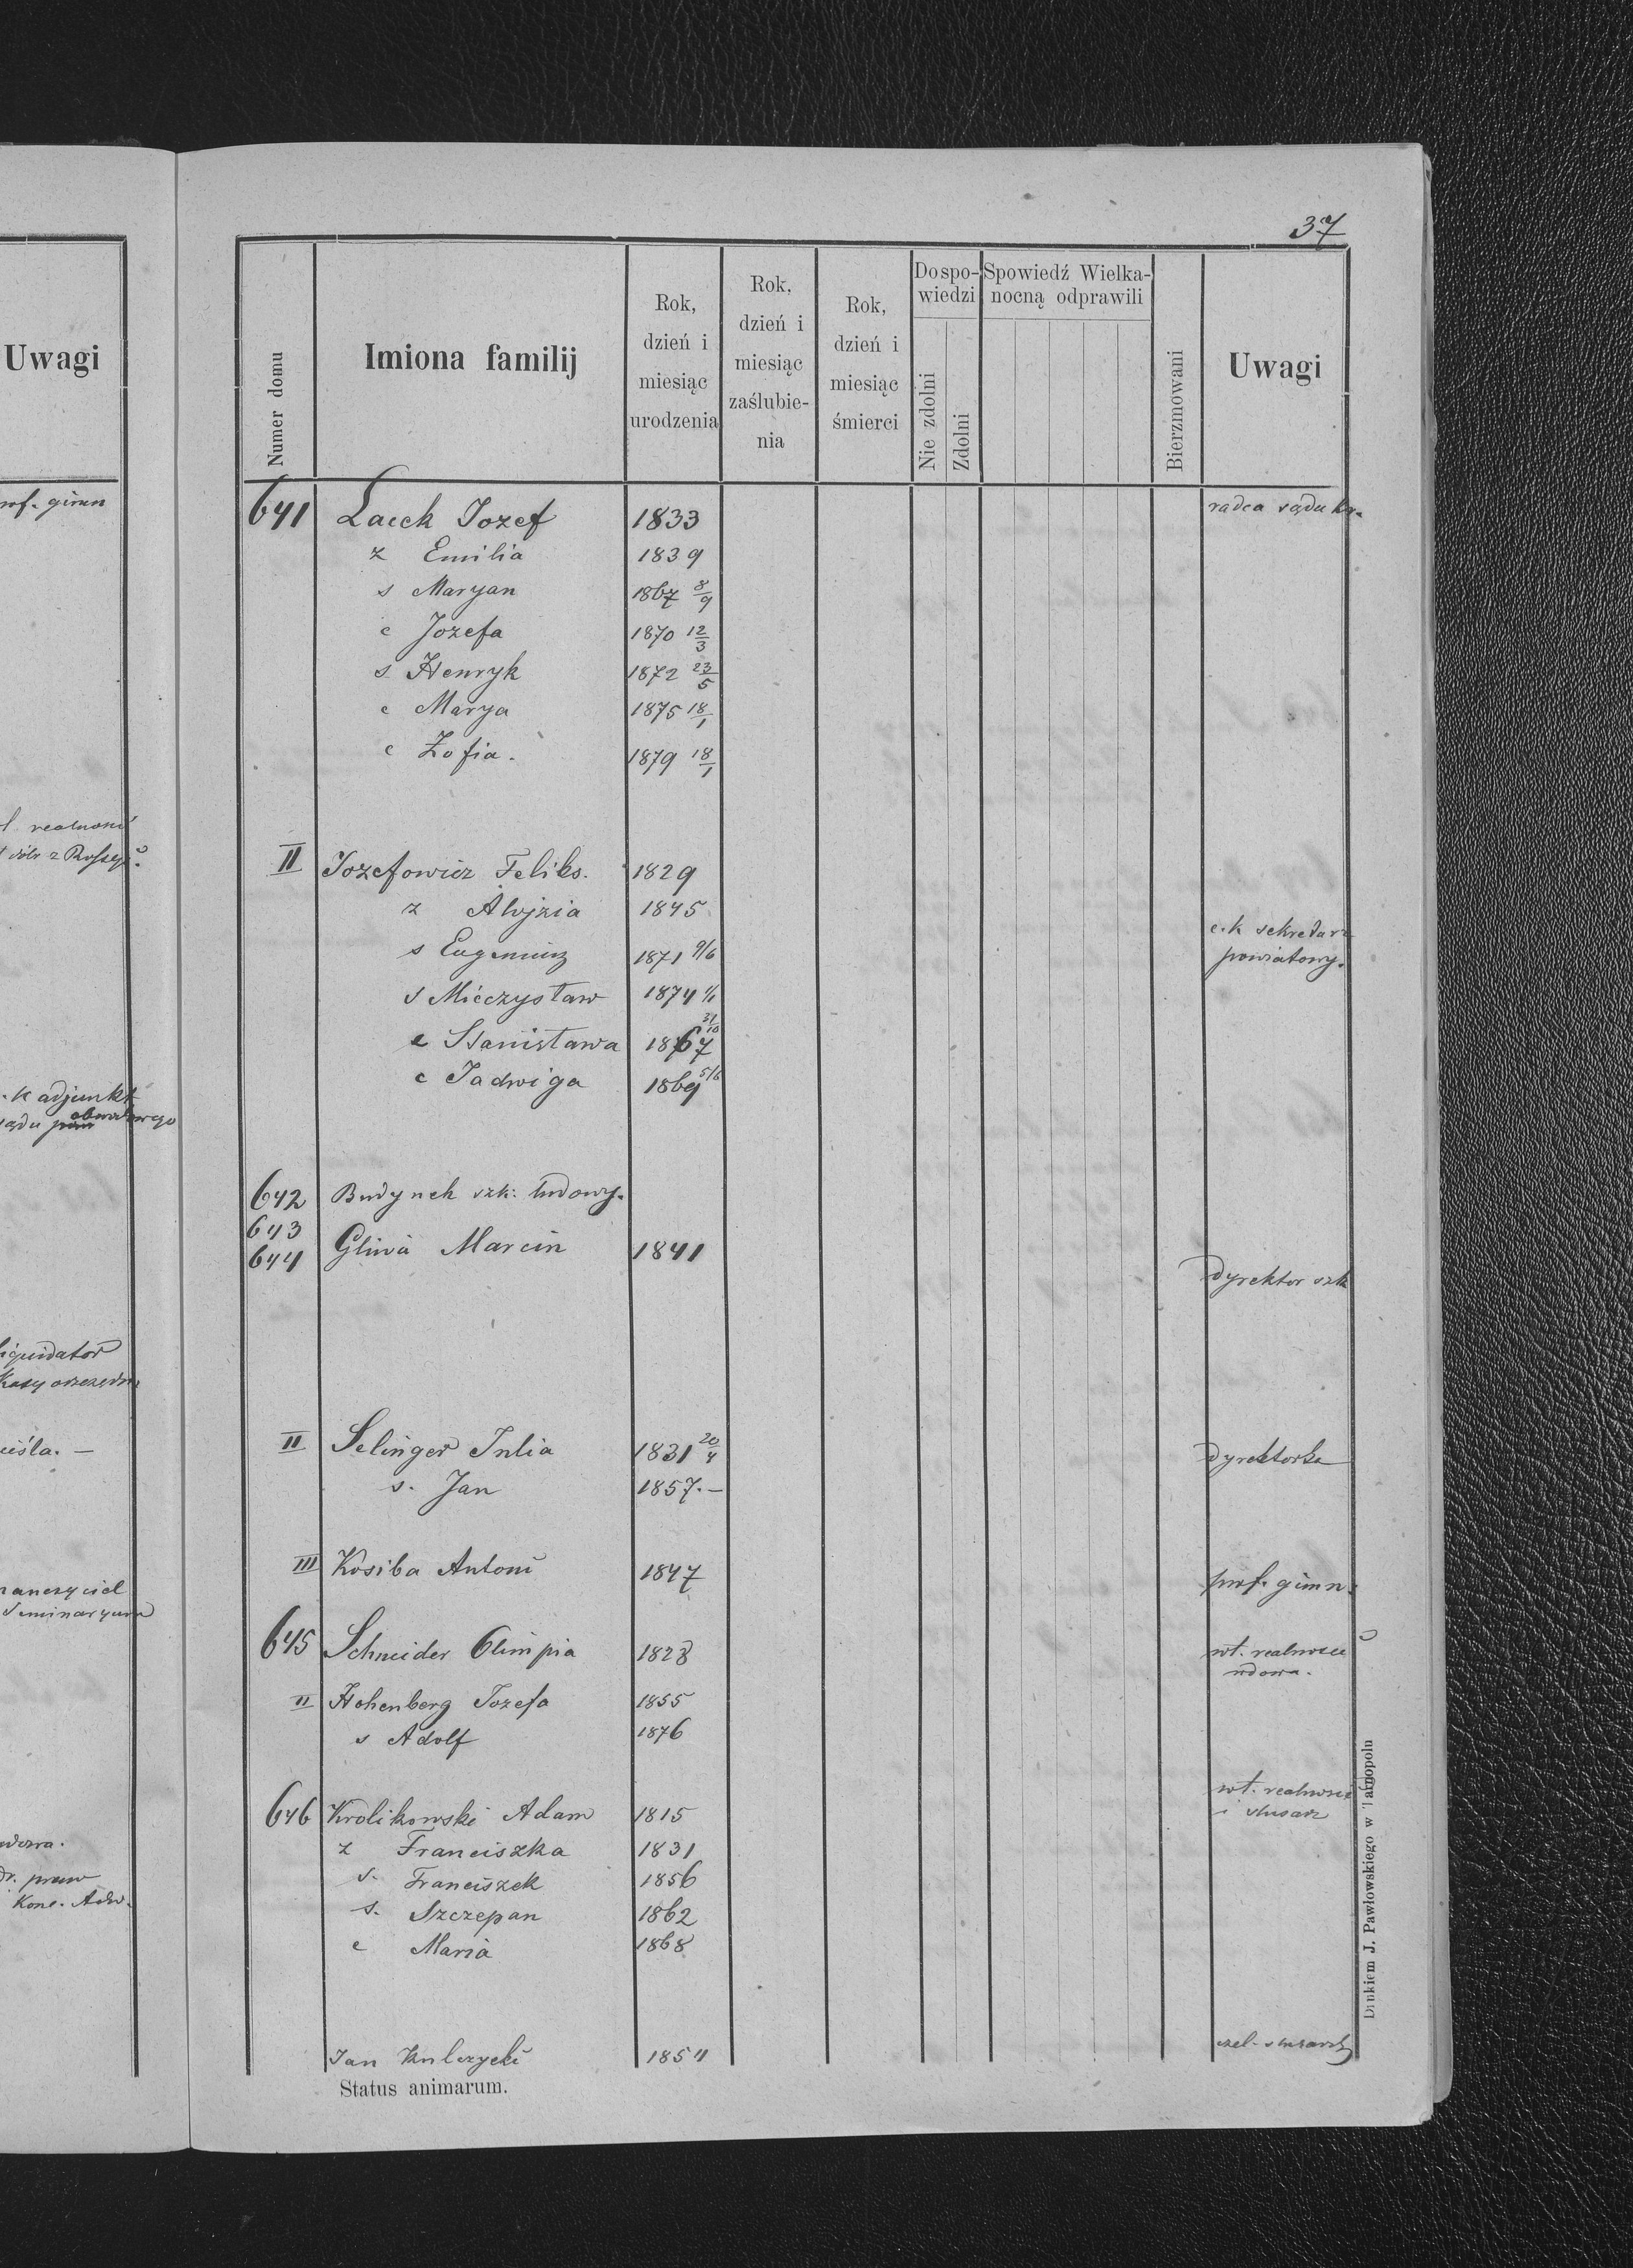 37
Uwagi
prof. gimn
Numer domu
Imiona familij
Rok, dzień i miesiąc urodzenia
Rok, dzień i miesiąc zaślubie-nia
Rok, dzień i miesiąc śmierci
Do spo-wiedzi
Nie zdolni
Zdolni
Spowiedź Wielka-nocną odprawili
Bierzmowani
Uwagi
641 Lacek Jozef 1833 radca sądu kr.
z Emilia 1839
s Maryan 1867 8/9
c Jozefa 1870 12/3
s Henryk 1872 23/5
c Marya 1875 18/1
c Zofia. 1879 18/1
II Jozefowicz Feliks. 1829
z Alojzia 1845 c.k sekretarz
s Eugeniusz 1871 9/6 powiatowy.
s Mieczysław 1874 1/1
c Stanisława 1867 31/10
c Jadwiga 1869 5/6
642 Budynek szk: ludowy.
643
644 Gliwa Marcin 1841
dyrektor szk
II Selinger Julia 1831 20/4 dyrektorka
s. Jan 1857.—
III Kosiba Antoni 1847 prof. gimn.
645 Schneider Olimpia 1828 wł. realności
wdowa.
II Hohenberg Jozefa 1855
s Adolf 1876
646 Krolikowski Adam 1815 wł. realności
i slusarz
z Franciszka 1831
s. Franciszek 1856
s. Szczepan 1862
c Maria 1868
Jan Kulczycki 1854 czel. slusarski
Status animarum.
Drukiem J. Pawłowskiego w Tarnopolu
adjunkt
liquidator
nauczyciel
Seminaryum
wdowa.
dr. praw
Konc. Adw.